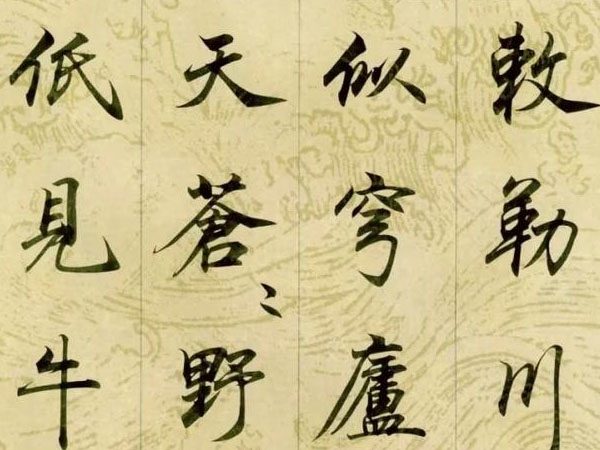 敕勒川
似穹廬
天蒼〻野
低見牛